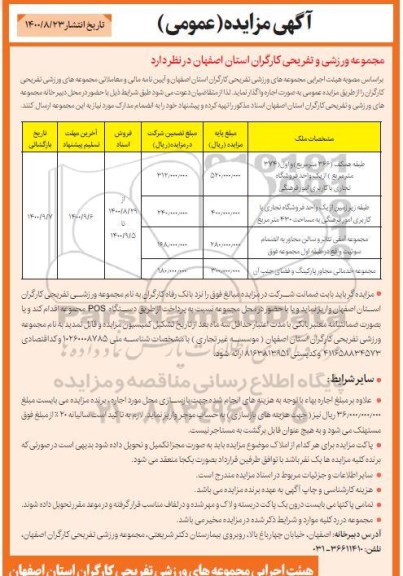 آگهی مزایده(عمومی)
تاریخ انتشار ۱۴۰۰/۸/۲۳
مجموعه ورزشی و تفریحی کارگران استان اصفهان در نظر دارد
براساس مصوبه هیئت اجرایی مجموعه های ورزشی تفریحی کارگران استان اصفهان و آیین نامه مالی و معاملاتی مجموعه های ورزشی تفریحی
کارگران را از طریق مزایده عمومی به صورت اجاره واگذار نماید. لذا از متقاضیان دعوت می شود طبق شرایط ذیل با حضور در محل دبیرخانه مجموعه
های ورزشی و تفریحی کارگران استان اصفهان اسناد مذکور را تهیه کرده و پیشنهاد خود را به انضمام مدارک مورد نیاز به این مجموعه ارسال کنند.
مشخصات ملک
مبلغ پایه مزایده (ریال)
مبلغ تضمین شرکت در مزایده(ریال)
فروش اسناد
آخرین مهلت تسلیم پیشنهاد
تاریخ بازگشائی
طبقه همکف (۳۶۶ مترمربع) و اول (۳۷۴
مترمربع) از یک واحد فروشگاه
تجاری با کاربری امور فرهنگی
۵۲۰،۰۰۰،۰۰۰
۳۱۲،۰۰۰،۰۰۰
از ۱۴۰۰/۸/۲۹ تا ۱۴۰۰/۹/۵
۱۴۰۰/۹/۶
۱۴۰۰/۹/۷
طبقه زیرزمین از یک واحد فروشگاه تجاری با
کاربری امور فرهنگی به مساحت ۴۳۰ متر مربع
۴۰۰،۰۰۰،۰۰۰
۲۴۰،۰۰۰،۰۰۰
مجموعه آمفی تئاتر و سالن مجاور به انضمام
سوئیت واقع در طبقه اول مجموعه فوق
۲۸۰،۰۰۰،۰۰۰
۱۶۸،۰۰۰،۰۰۰
مجموعه خدماتی مجاور پارکینگ و فضای جنب آن
۳۰۰،۰۰۰،۰۰۰
۱۸۰،۰۰۰،۰۰۰
مزایده گر باید بابت ضمانت شرکت در مزایده مبالغ فوق را نزد بانک رفاه کارگران به نام مجموعه ورزشی تفریحی کارگران
استان اصفهان واریز نماید و یا با حضور در محل مجموعه نسبت به پرداخت از طریق دستگاه POS مجموعه اقدام کند و یا
بصورت ضمانتنامه معتبر بانکی با مدت اعتبار حداقل سه ماه بعد از تاریخ تشکیل کمیسیون مزایده و قابل تمدید به نام مجموعه
ورزشی تفریحی کارگران استان اصفهان (موسسه غیرتجاری) با مشخصات شناسه ملی و کداقتصادی
۴۱۱۶۵۸۸۳۴۵۷۳ و کدپستی ۸۱۶۳۸۱۳۹۵۱ ارائه شود.
سایر شرایط:
علاوه بر مبلغ اجاره بهاء با توجه به هزینه های انجام شده جهت بازسازی محل مورد اجاره، برنده مزایده می بایست مبلغ
۳۶،۰۰۰،۰۰۰،۰۰۰ ریال نیز (جهت هزینه های بازسازی) به حساب موجر واریز نماید. لازم به تاکید است سالیانه ۲۰٪ از مبلغ فوق
مستهلک می شود و به هیچ عنوان قابل برگشت به مستاجر نیست.
پاکت مزایده برای هر کدام از املاک موضوع مزایده باید به صورت مجزا تکمیل و تحویل داده شود بدیهی است در صورتی که
برنده کلیه مزایده ها یک نفر باشد با توافق طرفین قرارداد بصورت یکجا منعقد می شود.
سایر اطلاعات و جزئیات مربوط در اسناد مزایده مندرج است.
هزینه کارشناسی و چاپ آگهی به عهده برنده مزایده می باشد.
تمامی پاکتها می بایست درون یک پاکت دربسته و لاک و مهر شده و در لفاف مناسب قرار گرفته و در موعد مقرر تحویل داده شوند.
مجموعه در رد کلیه موارد و شرایط ذکر شده در مزایده مخیر می باشد.
آدرس دبیرخانه: اصفهان، خیابان چهارباغ بالا، روبروی بیمارستان دکتر شریعتی، مجموعه ورزشی تفریحی کارگران اصفهان،
تلفن: ۳۶۶۱۱۴۱۰-۰۳۱
هیئت اجرایی مجموعه های ورزشی تفریحی کارگران استان اصفهان
پایگاه اطلاع رسانی مناقصه و مزایده